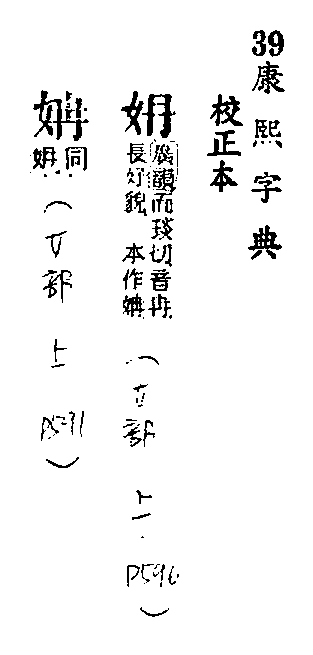 39康熙字典
校正本
㚩
廣韻而琰切音冉
長好貌 本作姌
(女部 上. P596)
姌
同
㚩
(女部 上